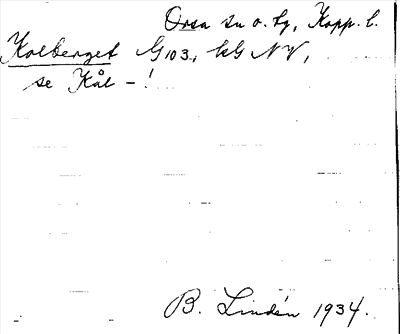 Orsa sn o. tg, Kopp. l.
Kolberget G103, kG NV,
se Kål - !
B. Lindén 1934.